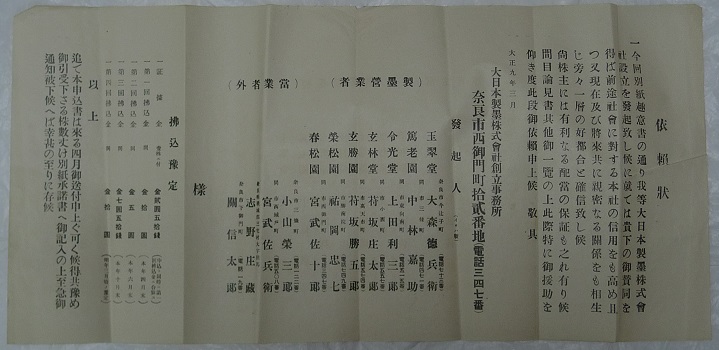 依賴狀
一今囘別紙趣意書の通り我等大日本製墨株式會
社設立を發起致し候に就ては貴下の御賛同を
得ば前途社會に對する本社の信用をも高め且
つ又現在及び將來共に親密なる關係をも相生
じ旁々一層の好都合と確信致し候
尙株主には有利なる配當の保証も之れ有り候
間目論見書其他御一覽の上此際特に御援助を
仰き度此段御依賴申上候 敬具
大正九年三月
大日本製墨株式會社創立事務所
奈良市西御門町拾貳番地 電話三四七番
發起人
(製墨營業者)
玉翠堂 大森德兵衛
篤老園 中林嘉助
令光堂 上田利三郎
玄林堂 苻坂庄太郎
玄勝園 苻坂勝五郎
榮松園 祐岡忠七
春松園 宮武佐十郎
(當業者外)
小山榮三郎
宮武佐兵衛
志野庄藏
關信太郎
樣
拂込豫定
一証據金 金貳圓五拾錢
一第一囘拂込金 金拾圓
一第二囘拂込金 金七圓五拾錢
一第三囘拂込金 金拾圓
一第四囘拂込金 金拾圓
以上
追て本申込書は來る四月御送付申上ぐ可く候得共豫め
御引受下さる株數丈け別紙承諾書へ御記入の上至急御
通知被下候へば幸甚の至りに存候